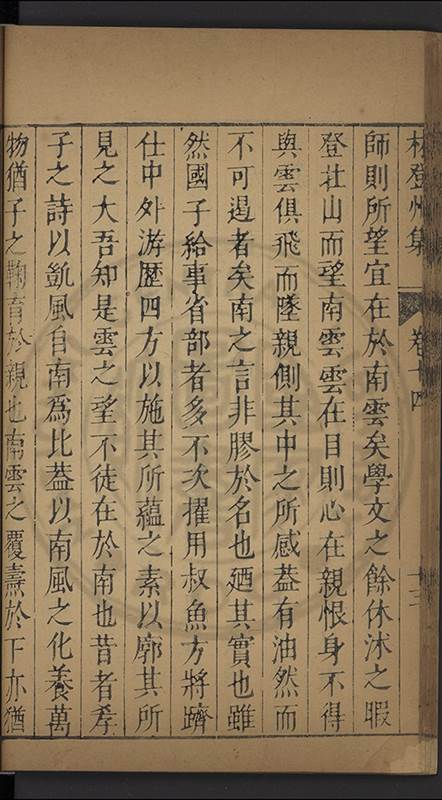 林登州集 卷十四 十三
師則所望宜在於南雲矣學文之餘休沐之暇
登壯山而望南雲雲在目則心在親恨身不得
與雲俱飛而墜親側其中之所感葢有油然而
不可遏者矣南之言非膠於名也廼其實也雖
然國子給事省部者多不次擢用叔魚方將躋
仕中外游歷四方以施其所蘊之素以廓其所
見之大吾知是雲之望不徒在於南也昔者孝
子之詩以凱風自南爲比葢以南風之化養萬
物猶子之鞠育於親也南雲之覆燾於下亦猶